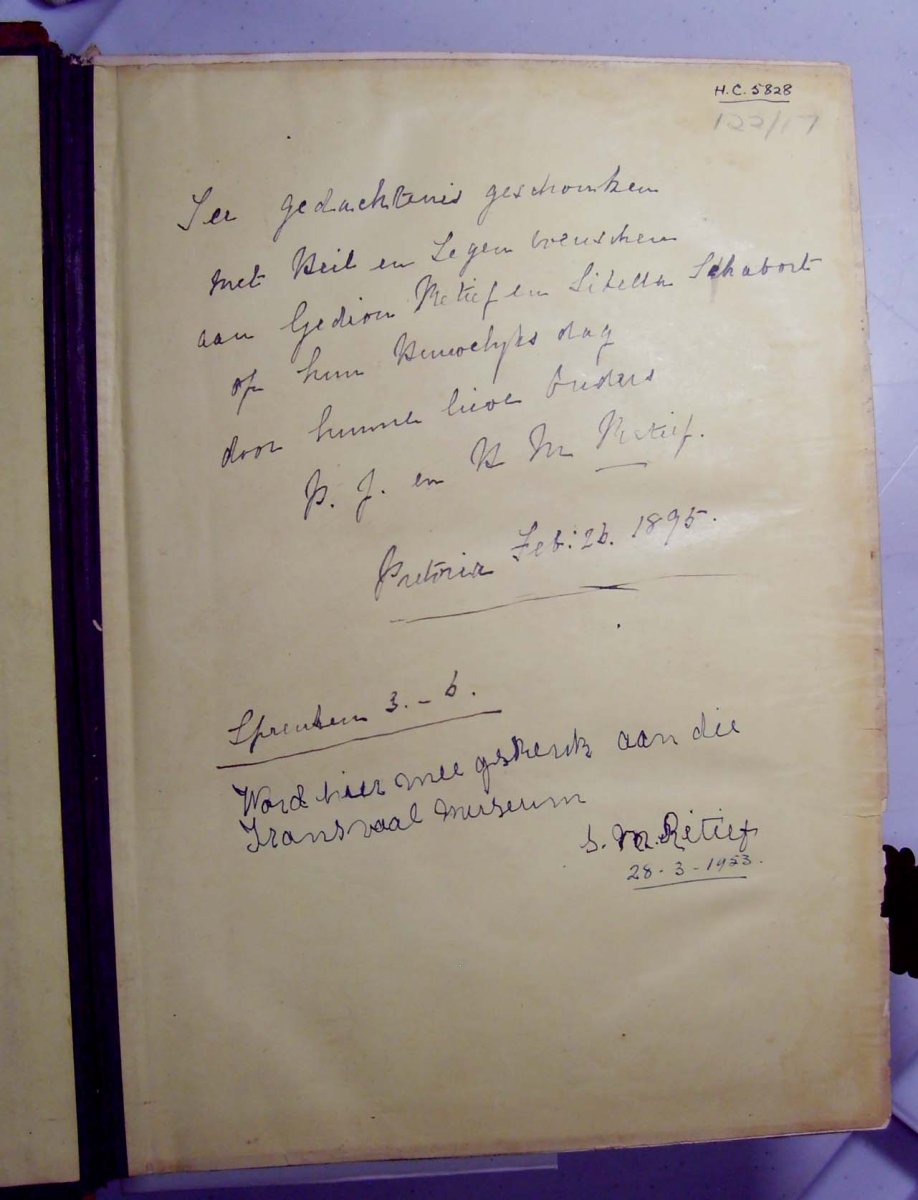 H.C. 5828
122/17
Ter gedachtenis geschonken
met Heil en Zegen wenschen
aan Gedion Retief en Sitella Schabort
op hun Huwelyks dag
door hunne lieve Ouders
P. J. en H M Retief.
Pretoria Feb: 26. 1895.
Spreuken 3. - 6.
Word hier mee geskenk aan die
Transvaal Museum
S. M. Retief
28 - 3 - 1953.